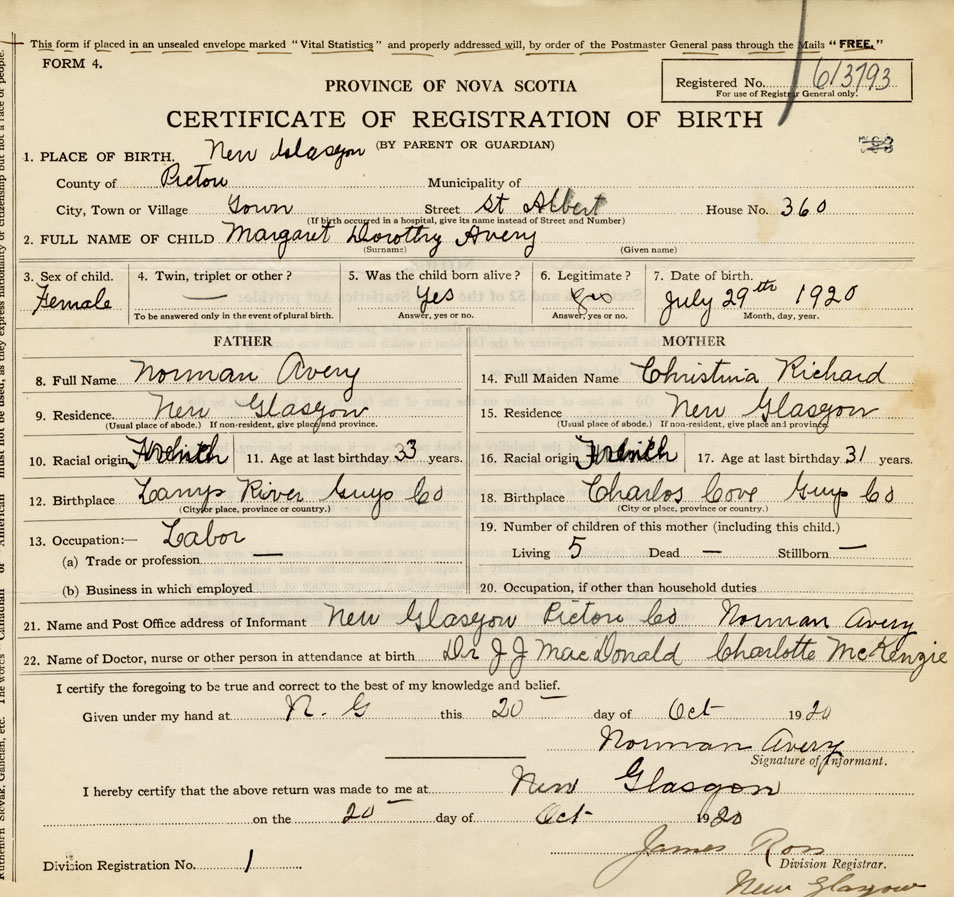 This form if placed in an unsealed envelope marked “Vital Statistics” and properly addressed will, by order of the Postmaster General pass through the Mails “FREE.”
FORM 4.
Registered No. 613793
For use of Registrar General only.
PROVINCE OF NOVA SCOTIA
CERTIFICATE OF REGISTRATION OF BIRTH
(BY PARENT OR GUARDIAN)
1. PLACE OF BIRTH. New Glasgow
County of Pictou Municipality of
City, Town or Village Town Street St Albert House No. 360
(If birth occurred in a hospital, give its name instead of Street and Number)
2. FULL NAME OF CHILD Margaret Dorothy Avery
(Surname) (Given name)
3. Sex of child. Female
4. Twin, triplet or other? —
To be answered only in the event of plural birth.
5. Was the child born alive? Yes
Answer, yes or no.
6. Legitimate? Yes
Answer, yes or no.
7. Date of birth. July 29th 1920
Month, day, year.
FATHER
8. Full Name Norman Avery
9. Residence. New Glasgow
(Usual place of abode.) If non-resident, give place and province.
10. Racial origin
11. Age at last birthday 33 years.
12. Birthplace Larrys River Guys Co
(City or place, province or country.)
13. Occupation:— Labor
(a) Trade or profession —
(b) Business in which employed
MOTHER
14. Full Maiden Name Christina Richard
15. Residence New Glasgow
(Usual place of abode.) If non-resident, give place and province.
16. Racial origin
17. Age at last birthday 31 years.
18. Birthplace Charlos Cove Guys Co
(City or place, province or country.)
19. Number of children of this mother (including this child.)
Living 5 Dead — Stillborn —
20. Occupation, if other than household duties
21. Name and Post Office address of Informant New Glasgow Pictou Co Norman Avery
22. Name of Doctor, nurse or other person in attendance at birth Dr J J MacDonald Charlotte McKenzie
I certify the foregoing to be true and correct to the best of my knowledge and belief.
Given under my hand at N. G this 20 day of Oct 1920
Norman Avery
Signature of Informant.
I hereby certify that the above return was made to me at New Glasgow
on the 20 day of Oct 1920
James Ross
Division Registrar.
Division Registration No. 1
New Glasgow